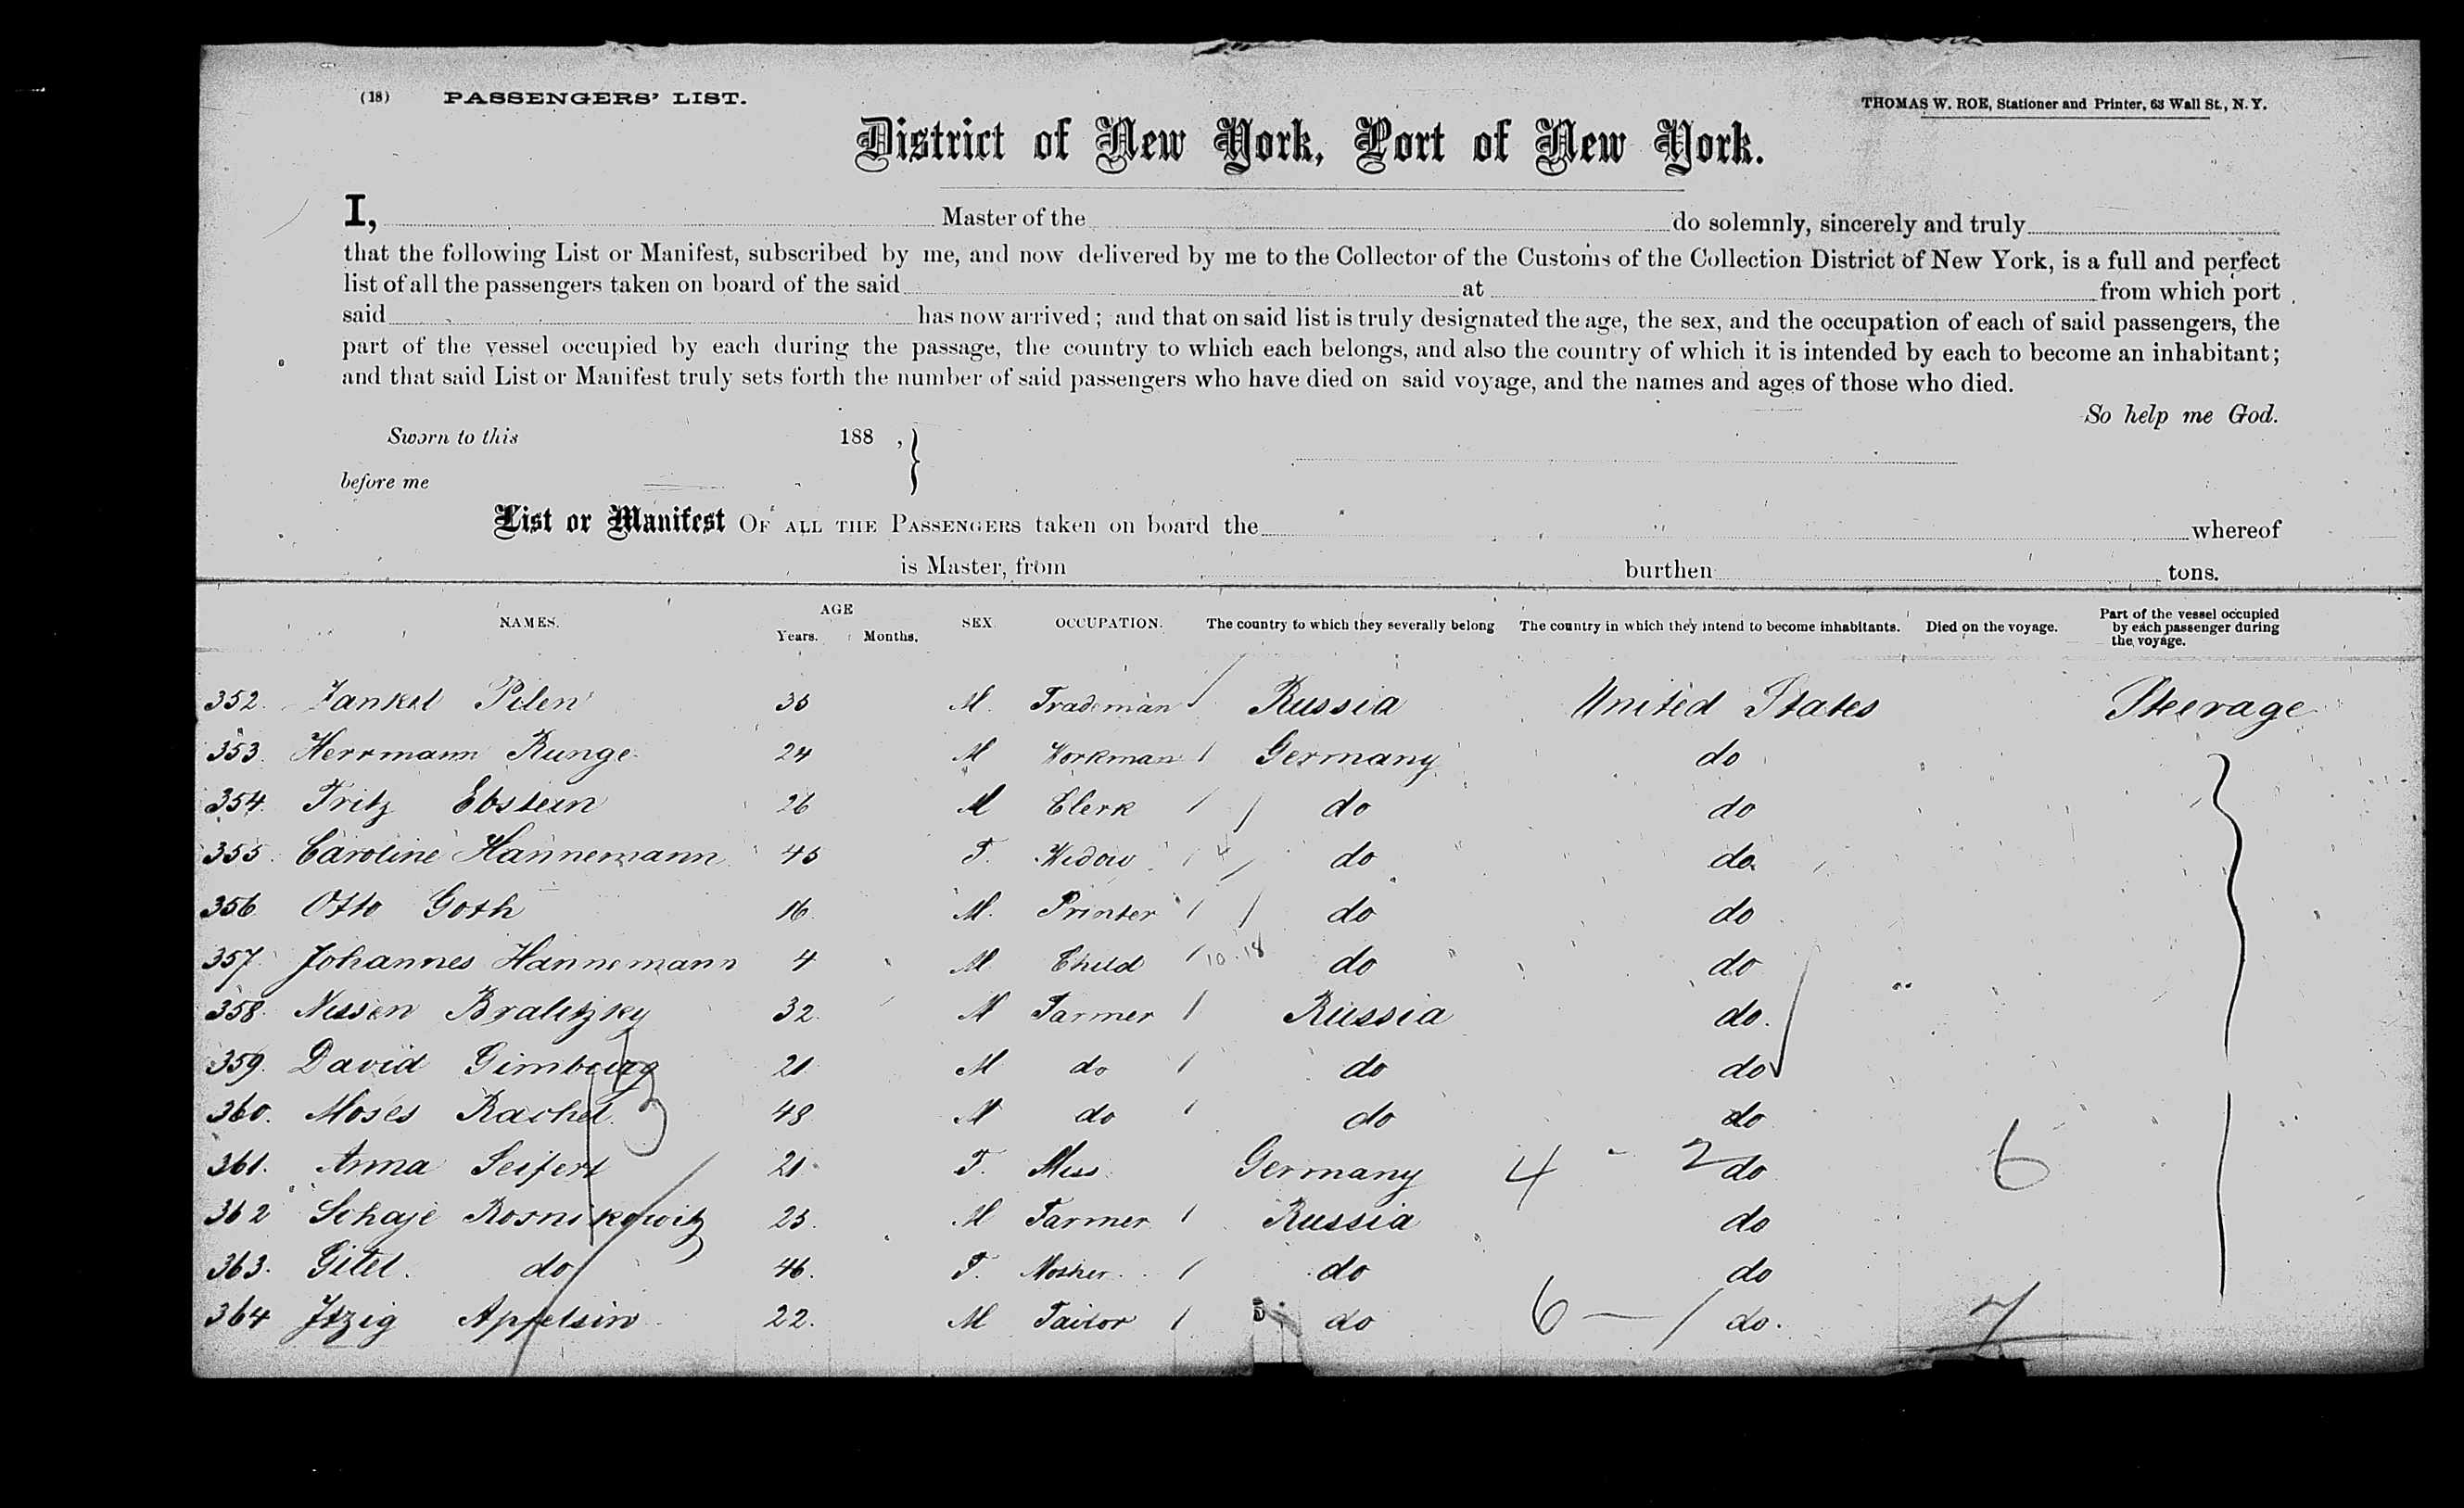 (18) PASSENGERS' LIST.
THOMAS W. ROE, Stationer and Printer, 63 Wall St., N. Y.
District of New York, Port of New York.
I, Master of the do solemnly, sincerely and truly
that the following List or Manifest, subscribed by me, and now delivered by me to the Collector of the Customs of the Collection District of New York, is a full and perfect
list of all the passengers taken on board of the said at from which port
said has now arrived; and that on said list is truly designated the age, the sex, and the occupation of each of said passengers, the
part of the vessel occupied by each during the passage, the country to which each belongs, and also the country of which it is intended by each to become an inhabitant;
and that said List or Manifest truly sets forth the number of said passengers who have died on said voyage, and the names and ages of those who died.
So help me God.
Sworn to this 188 , }
before me
List or Manifest OF ALL THE PASSENGERS taken on board the whereof
is Master, from burthen tons.
NAMES. AGE Years. Months. SEX OCCUPATION. The country to which they severally belong The country in which they intend to become inhabitants. Died on the voyage. Part of the vessel occupied by each passenger during the voyage.
352. Jankel Pilen 35 M. Trademan / Russia United States Steerage
353. Herrmann Runge 24 M Workman / Germany do
354. Fritz Ebstein 26 M Clerk / / do do
355. Caroline Hannemann 45 F. Widow / 4 / do do.
356 Otto Goth 16 M. Printer / / do do
357. Johannes Hannemann 4 M Child / 10.18 do do
358. Nissen Bralitzky 32. M Farmer / Russia do.
359. David Gimburg 21 M do / do do
360. Moses Rachel. 48 M do / do do
361. Anna Seifert 21 F. Miss. Germany 4 - 2 do 6
362 Schaje Rosnikowitz 25. M Farmer / Russia do
363. Gitel. do 46. F. Mother. / do do
364 Itzig Apfelsin 22. M Tailor / do 6 — / do. 7